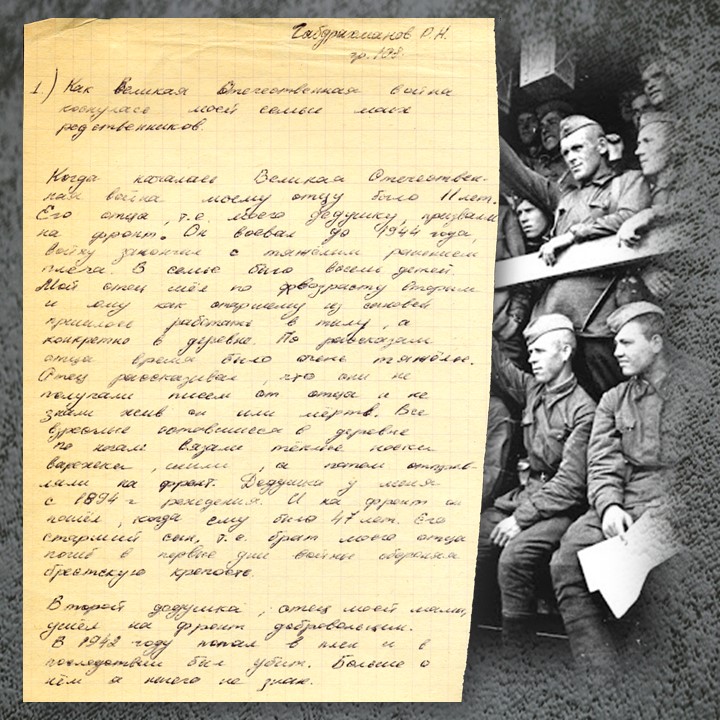 Габдрахманов Р.Н.
гр. 108.
1.) Как Великая Отечественная война
коснулась моей семьи моих
родственников.
Когда началась Великая Отечествен-
ная война моему отцу было 11 лет.
Его отца, т.е. моего дедушку, призвали
на фронт. Он воевал до 1944 года,
войну закончил с тяжёлым ранением
плеча. В семье было восемь детей.
Мой отец шёл по возрасту вторым
и ему как старшему из сыновей
пришлось работать в тылу, а
конкретно в деревне. По рассказам
отца время было очень тяжёлое.
Отец рассказывал, что они не
получали писем от отца и не
знали жив он или мёртв. Все
взрослые оставшиеся в деревне
по ночам вязали тёплые носки
варежки, шили, а потом отправ-
ляли на фронт. Дедушка у меня
с 1894 г рождения. И на фронт он
пошёл, когда ему было 47 лет. Его
старший сын, т.е. брат моего отца
погиб в первые дни войны обороняя
брестскую крепость.
Второй дедушка, отец моей мамы,
ушёл на фронт добровольцем.
В 1942 году попал в плен и в
последствии был убит. Больше о
нём я ничего не знаю.